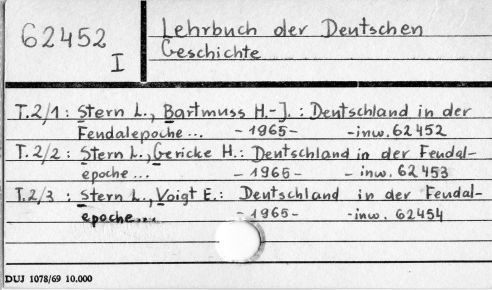 62452 I
Lehrbuch der Deutschen
Geschichte
T.2/1: Stern L., Bartmuss H.-J.: Deutschland in der
Feudalepoche... - 1965- -inw. 62452
T.2/2: Stern L., Gericke H.: Deutschland in der Feudal-
epoche... - 1965- - inw. 62 453
T.2/3: Stern L., Voigt E.: Deutschland in der Feudal-
epoche... - 1965- -inw. 62454
DUJ 1078/69 10.000